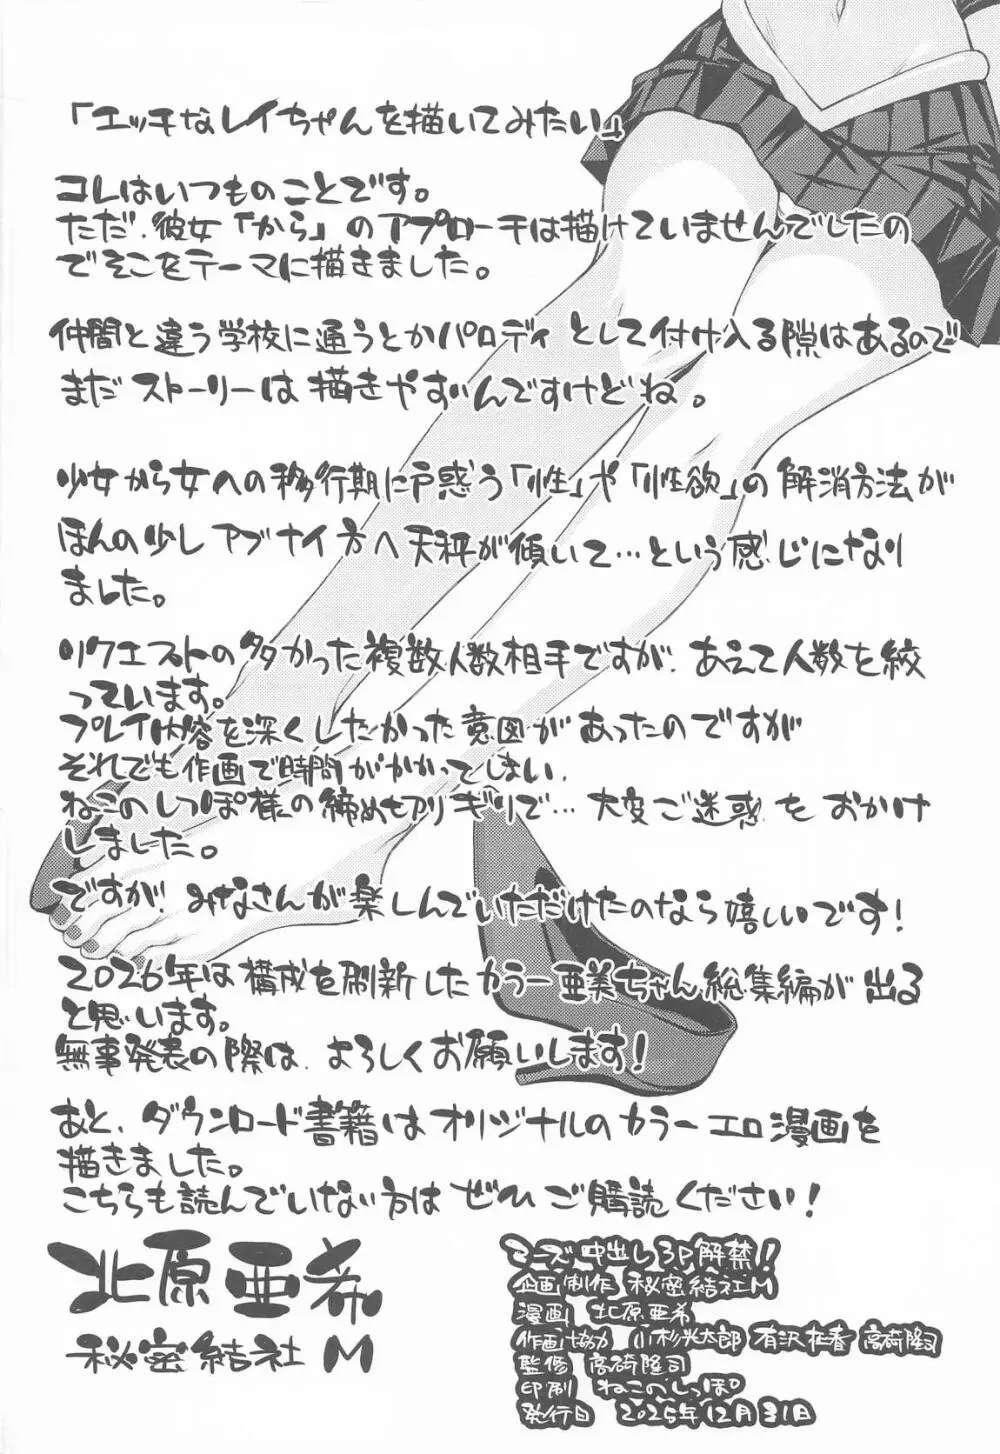 「エッチなレイちゃんを描いてみたい」
コレはいつものことです。
ただ、彼女「から」のアプローチは描けていませんでしたの
でそこをテーマに描きました。
仲間と違う学校に通うとかパロディとして付け入る隙はあるので
まだストーリーは描きやすいんですけどね。
少女から女への移行期に戸惑う「性」や「性欲」の解消方法が
ほんの少しアブナイ方へ天秤が傾いて…という感じになり
ました。
リクエストの多かった複数人数相手ですが、あえて人数を絞
っています。
プレイ内容を深くしたかった意図があったのですが
それでも作画で時間がかかってしまい、
ねこのしっぽ様の締めもギリギリで…大変ご迷惑をおかけ
しました。
ですが!みなさんが楽しんでいただけたのなら嬉しいです!
2026年は構成を刷新したカラー亜美ちゃん総集編が出る
と思います。
無事発表の際は、よろしくお願いします!
あと、ダウンロード書籍はオリジナルのカラーエロ漫画を
描きました。
こちらも読んでいない方はぜひご購読ください!
北原亜希
秘密結社M
マーズ中出し3P解禁!!
企画制作 秘密結社M
漫画 北原亜希
作画協力 小杉光太郎 有沢桂香 高崎隆司
監修 高崎隆司
印刷 ねこのしっぽ
発行日 2025年12月31日